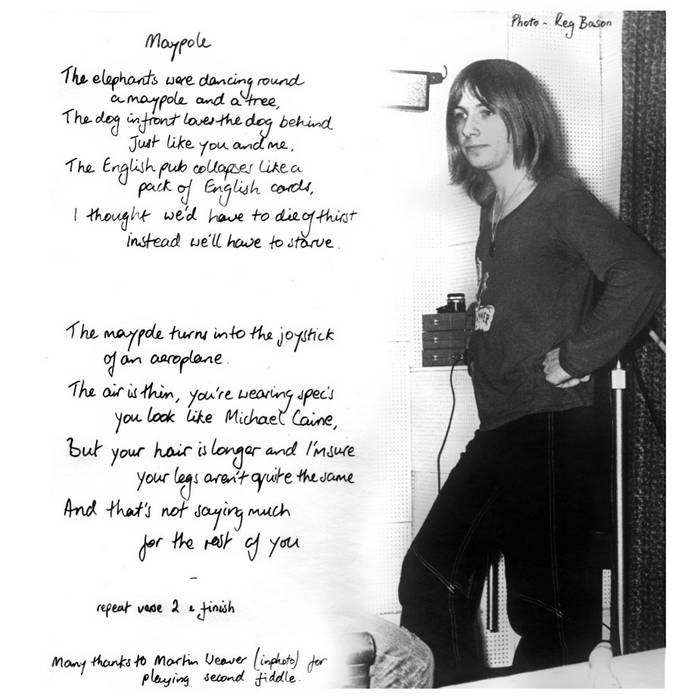 Photo - Reg Bason
Maypole
The elephants were dancing round
a maypole and a tree,
The dog in front loves the dog behind
Just like you and me,
The English pub collapses like a
pack of English cards,
I thought we'd have to die of thirst
instead we'll have to starve.
The maypole turns into the joystick
of an aeroplane.
The air is thin, you're wearing spec's
you look like Michael Caine,
But your hair is longer and I'm sure
your legs aren't quite the same
And that's not saying much
for the rest of you
-
repeat verse 2 & finish
Many thanks to Martin Weaver (in photo) for
playing second fiddle.